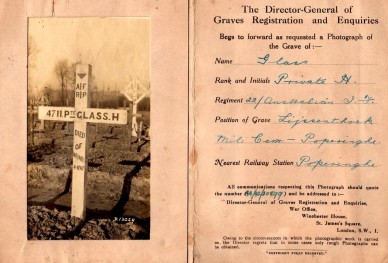 AIF
RIP
4711. PTE GLASS. H
DIED
OF
The Director-General of
Graves Registration and Enquiries
Begs to forward as requested a Photograph of
the Grave of :—
Name Glass
Rank and Initials Private H.
Regiment 22/ Australian I. F.
Position of Grave Lijssenthoek
Mil. Cem - Poperinghe
Nearest Railway Station Poperinghe
All communications respecting this Photograph should quote
the number and be addressed to :—
"Director-General of Graves Registration and Enquiries,
War Office,
Winchester House,
St. James's Square,
London, S.W., 1.
Owing to the circumstances in which the photographic work is carried
on the Director regrets that in some cases only rough Photographs can
be obtained.
"COPYRIGHT FULLY RESERVED."